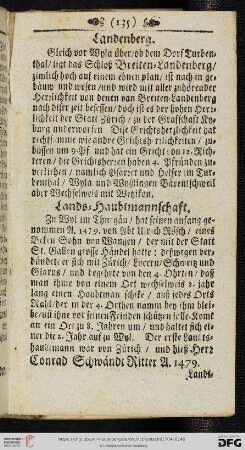 (135)
Landenberg.
Gleich vor Wyla über/ob dem Dorf Turben-
thal/ ligt das Schloß Breiten-Landenberg/
zimlich hoch auf einem ebnen plan/ ist noch in ge-
bäuw und wesen/und wird mit aller zuhörender
Herrlichkeit von denen van Breiten-Landenberg
nach diser zeit besessen/ doch ist es der hohen Herz-
lichkeit der Statt Zürich / zu der Graffschaft Ky
burg underworffen. Diße Grichtsherzlichkeit hat
recht/ wie andere Grichtsherzlichkeiten/ zu-
büssen um 9. Pf und hat ein Gricht von 12. Rich-
teren / die Grichtsherzen haben 4. Pfründen zu
verlichen / namlich Pfarrer und Helfer im Tur-
benthal / Wyla und Wyßlingen Bärentschweil
aber Wechselweis mit Wetzikon.
Lands-Haubtmannschaft.
Zu Wyl im Thurgäu / hat seinen anfang ge-
nommen A. 1479. von Abt Ulrich Rösch / eines
Beken Sohn von Wangen / der mit der Statt
St. Gallen grosse Händel hatte; deßwegen ver-
bündete er sich mit Zürich / Lucern/ Schweitz und
Glarus / und begehrte von den 4. Ohrten/ daß
man ihne von einem Ort wechselweis 2. jahr
lang einen Haubtman schike / auß jedes Orts
Raht/ der in der 4. Orthen namen bey ihm blei-
be/
an ein Ort zu 8. Jahren um / und haltet sich ei-
ner die 2. Jahr auf zu Wyl. Der erste Lands-
haubtmann war von Zürich / und hieß Herz
Conrad Schwändt Ritter A. 1479.
Lands-